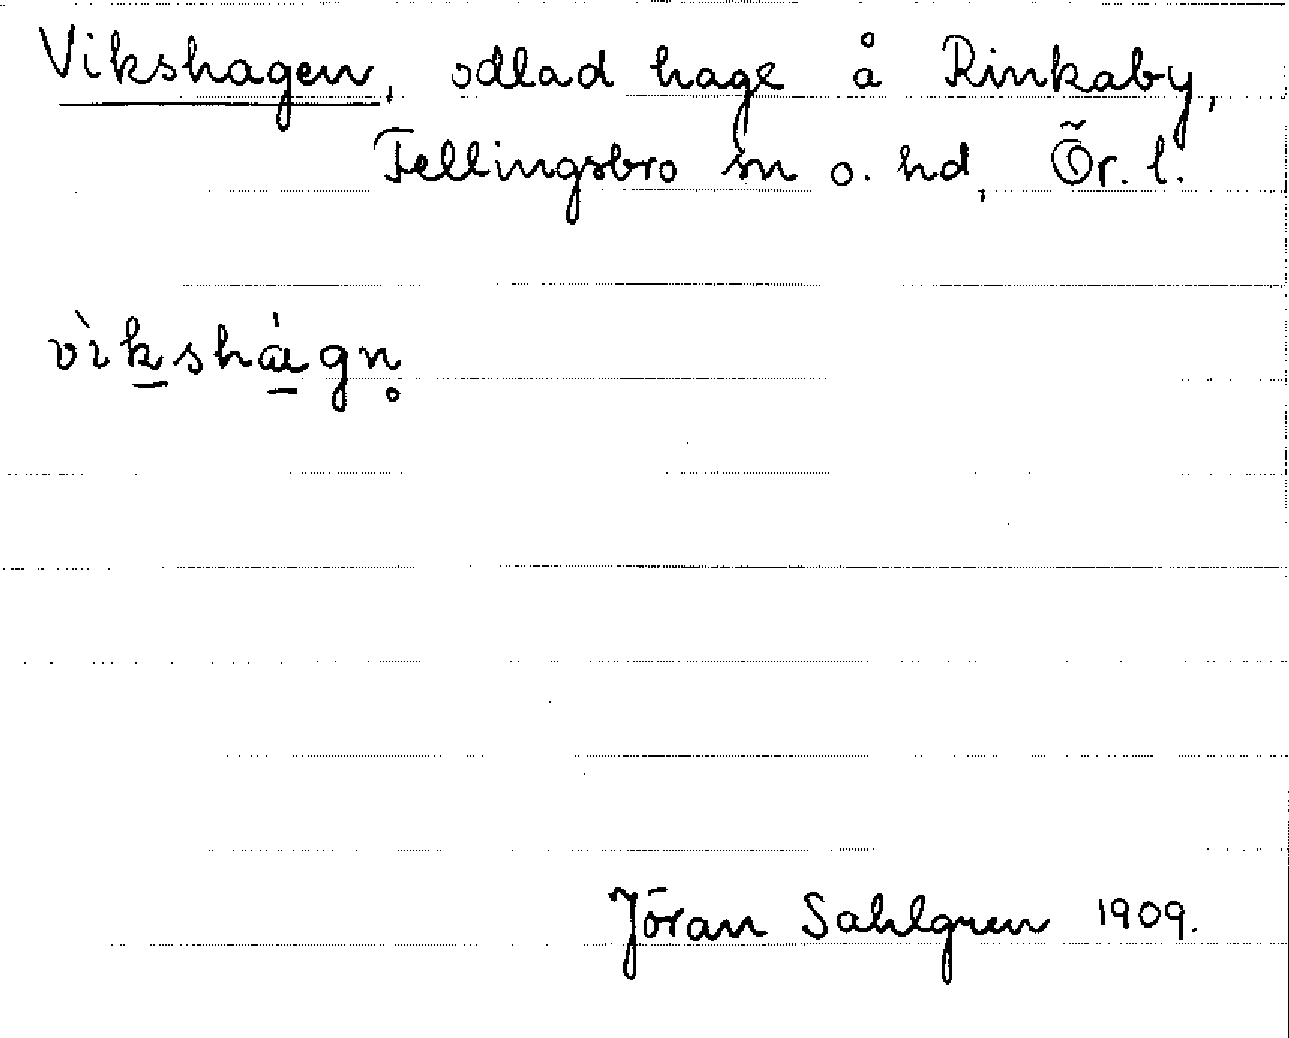 Vikshagen, odlad hage å Rinkaby,
Fellingsbro sn o. hd, Ör. l.
vìkshágn̥
Jöran Sahlgren 1909.